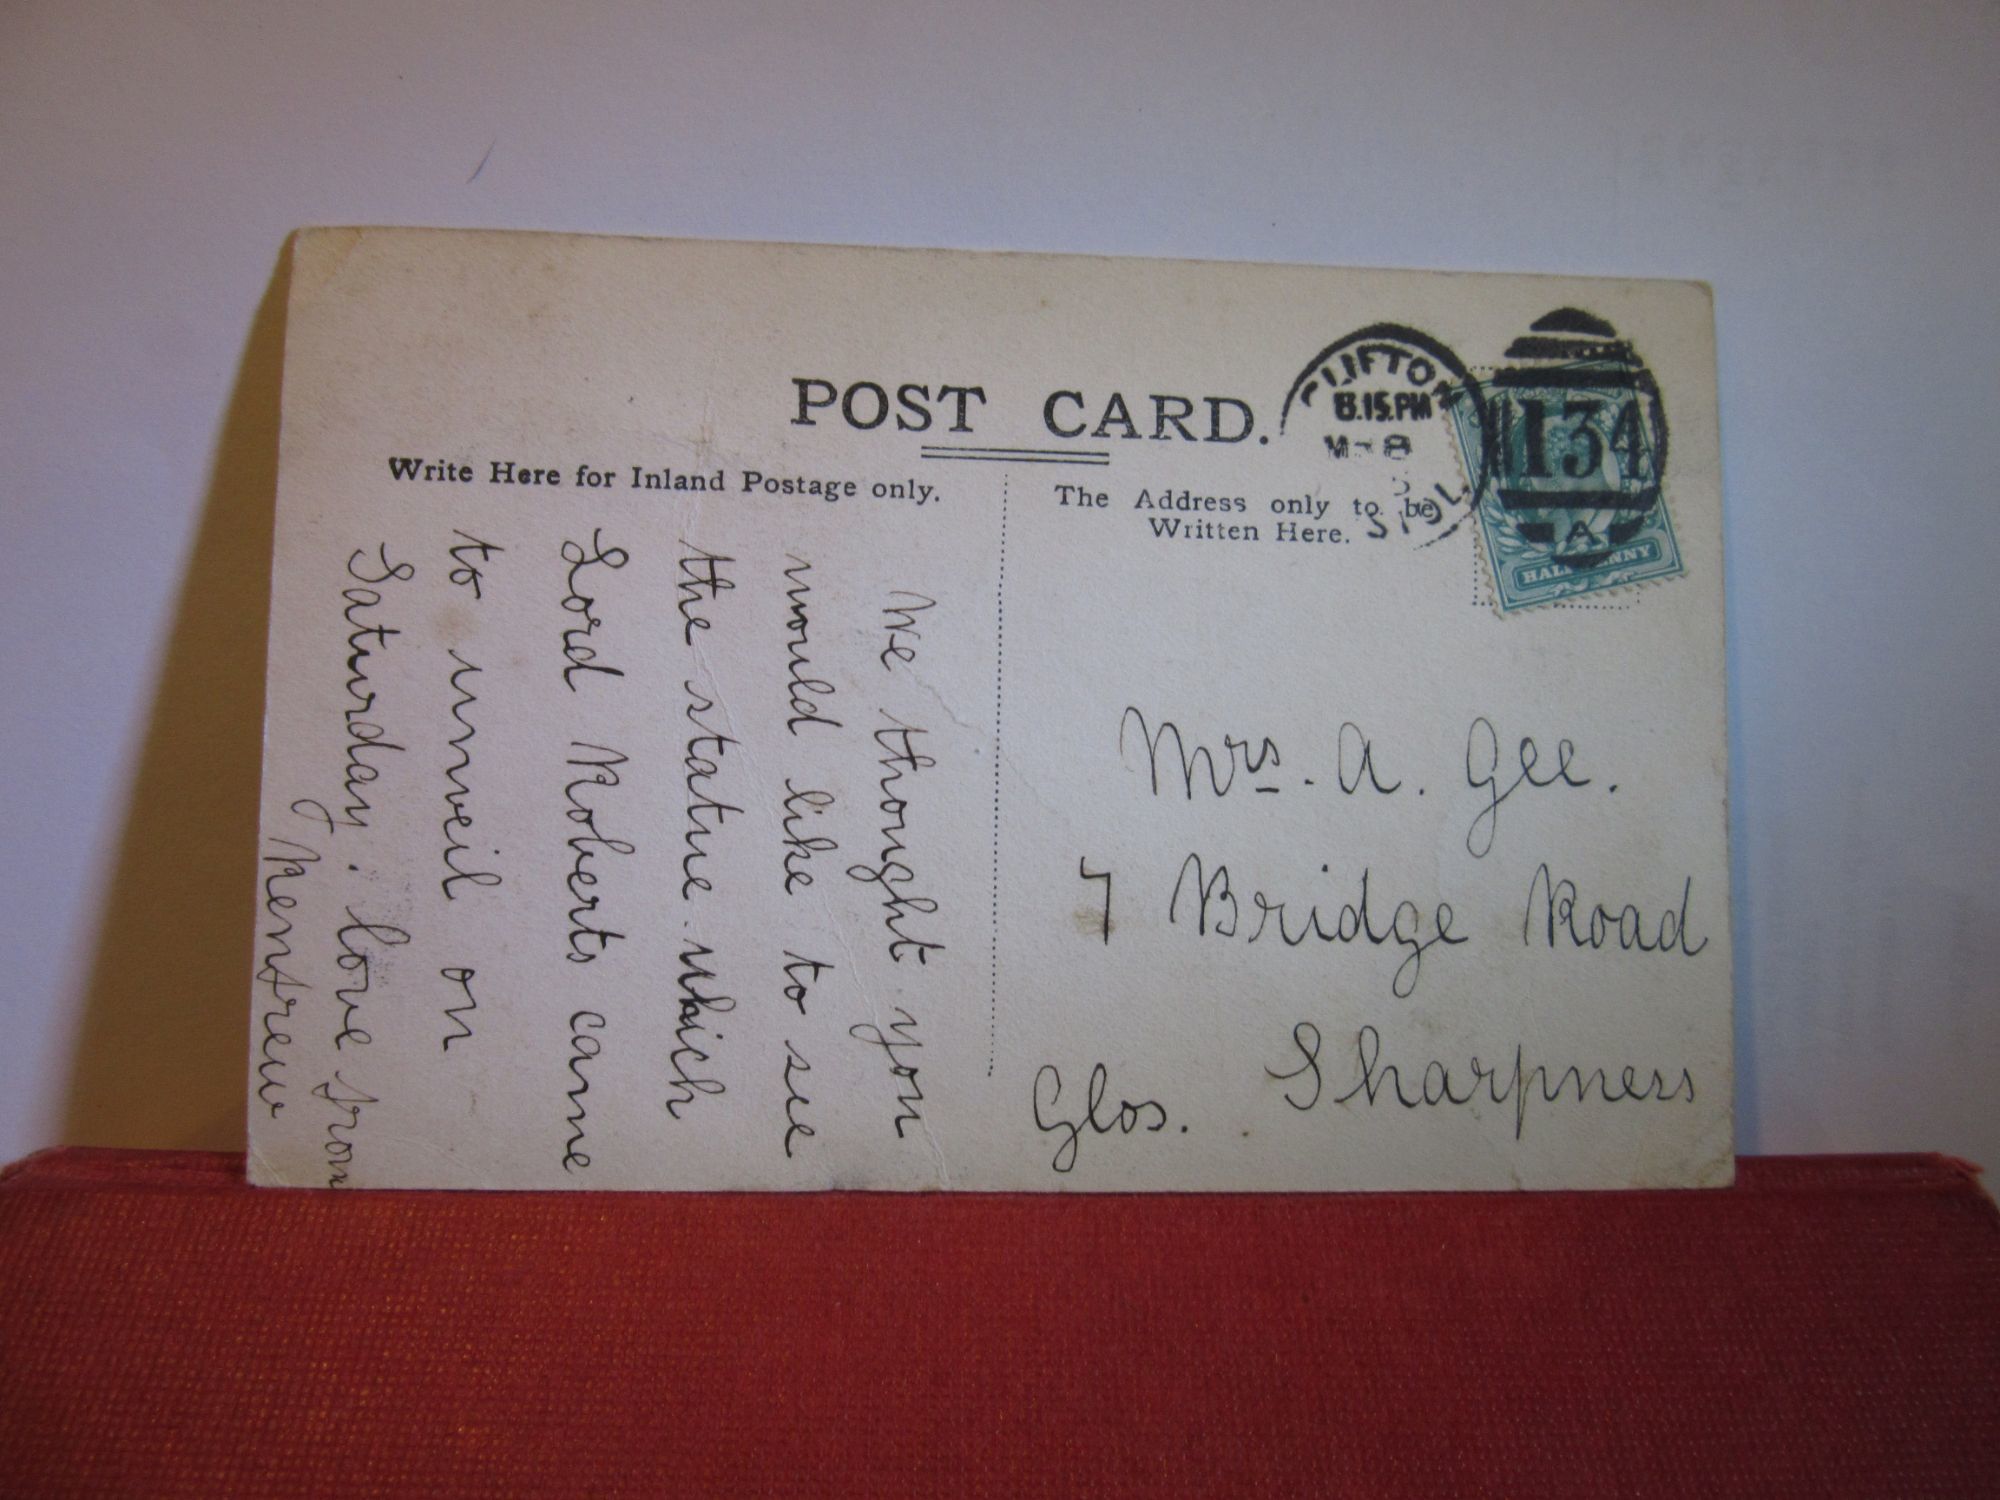 POST CARD.
Write Here for Inland Postage only.
The Address only to be
Written Here.
CLIFTON
8.15.PM
8
134
A
HALFPENNY
We thought you
would like to see
the statue which
Lord Roberts came
to unveil on
Saturday. love from
Renfrew
Mrs. A. Gee.
7 Bridge Road
Sharpness
Glos.